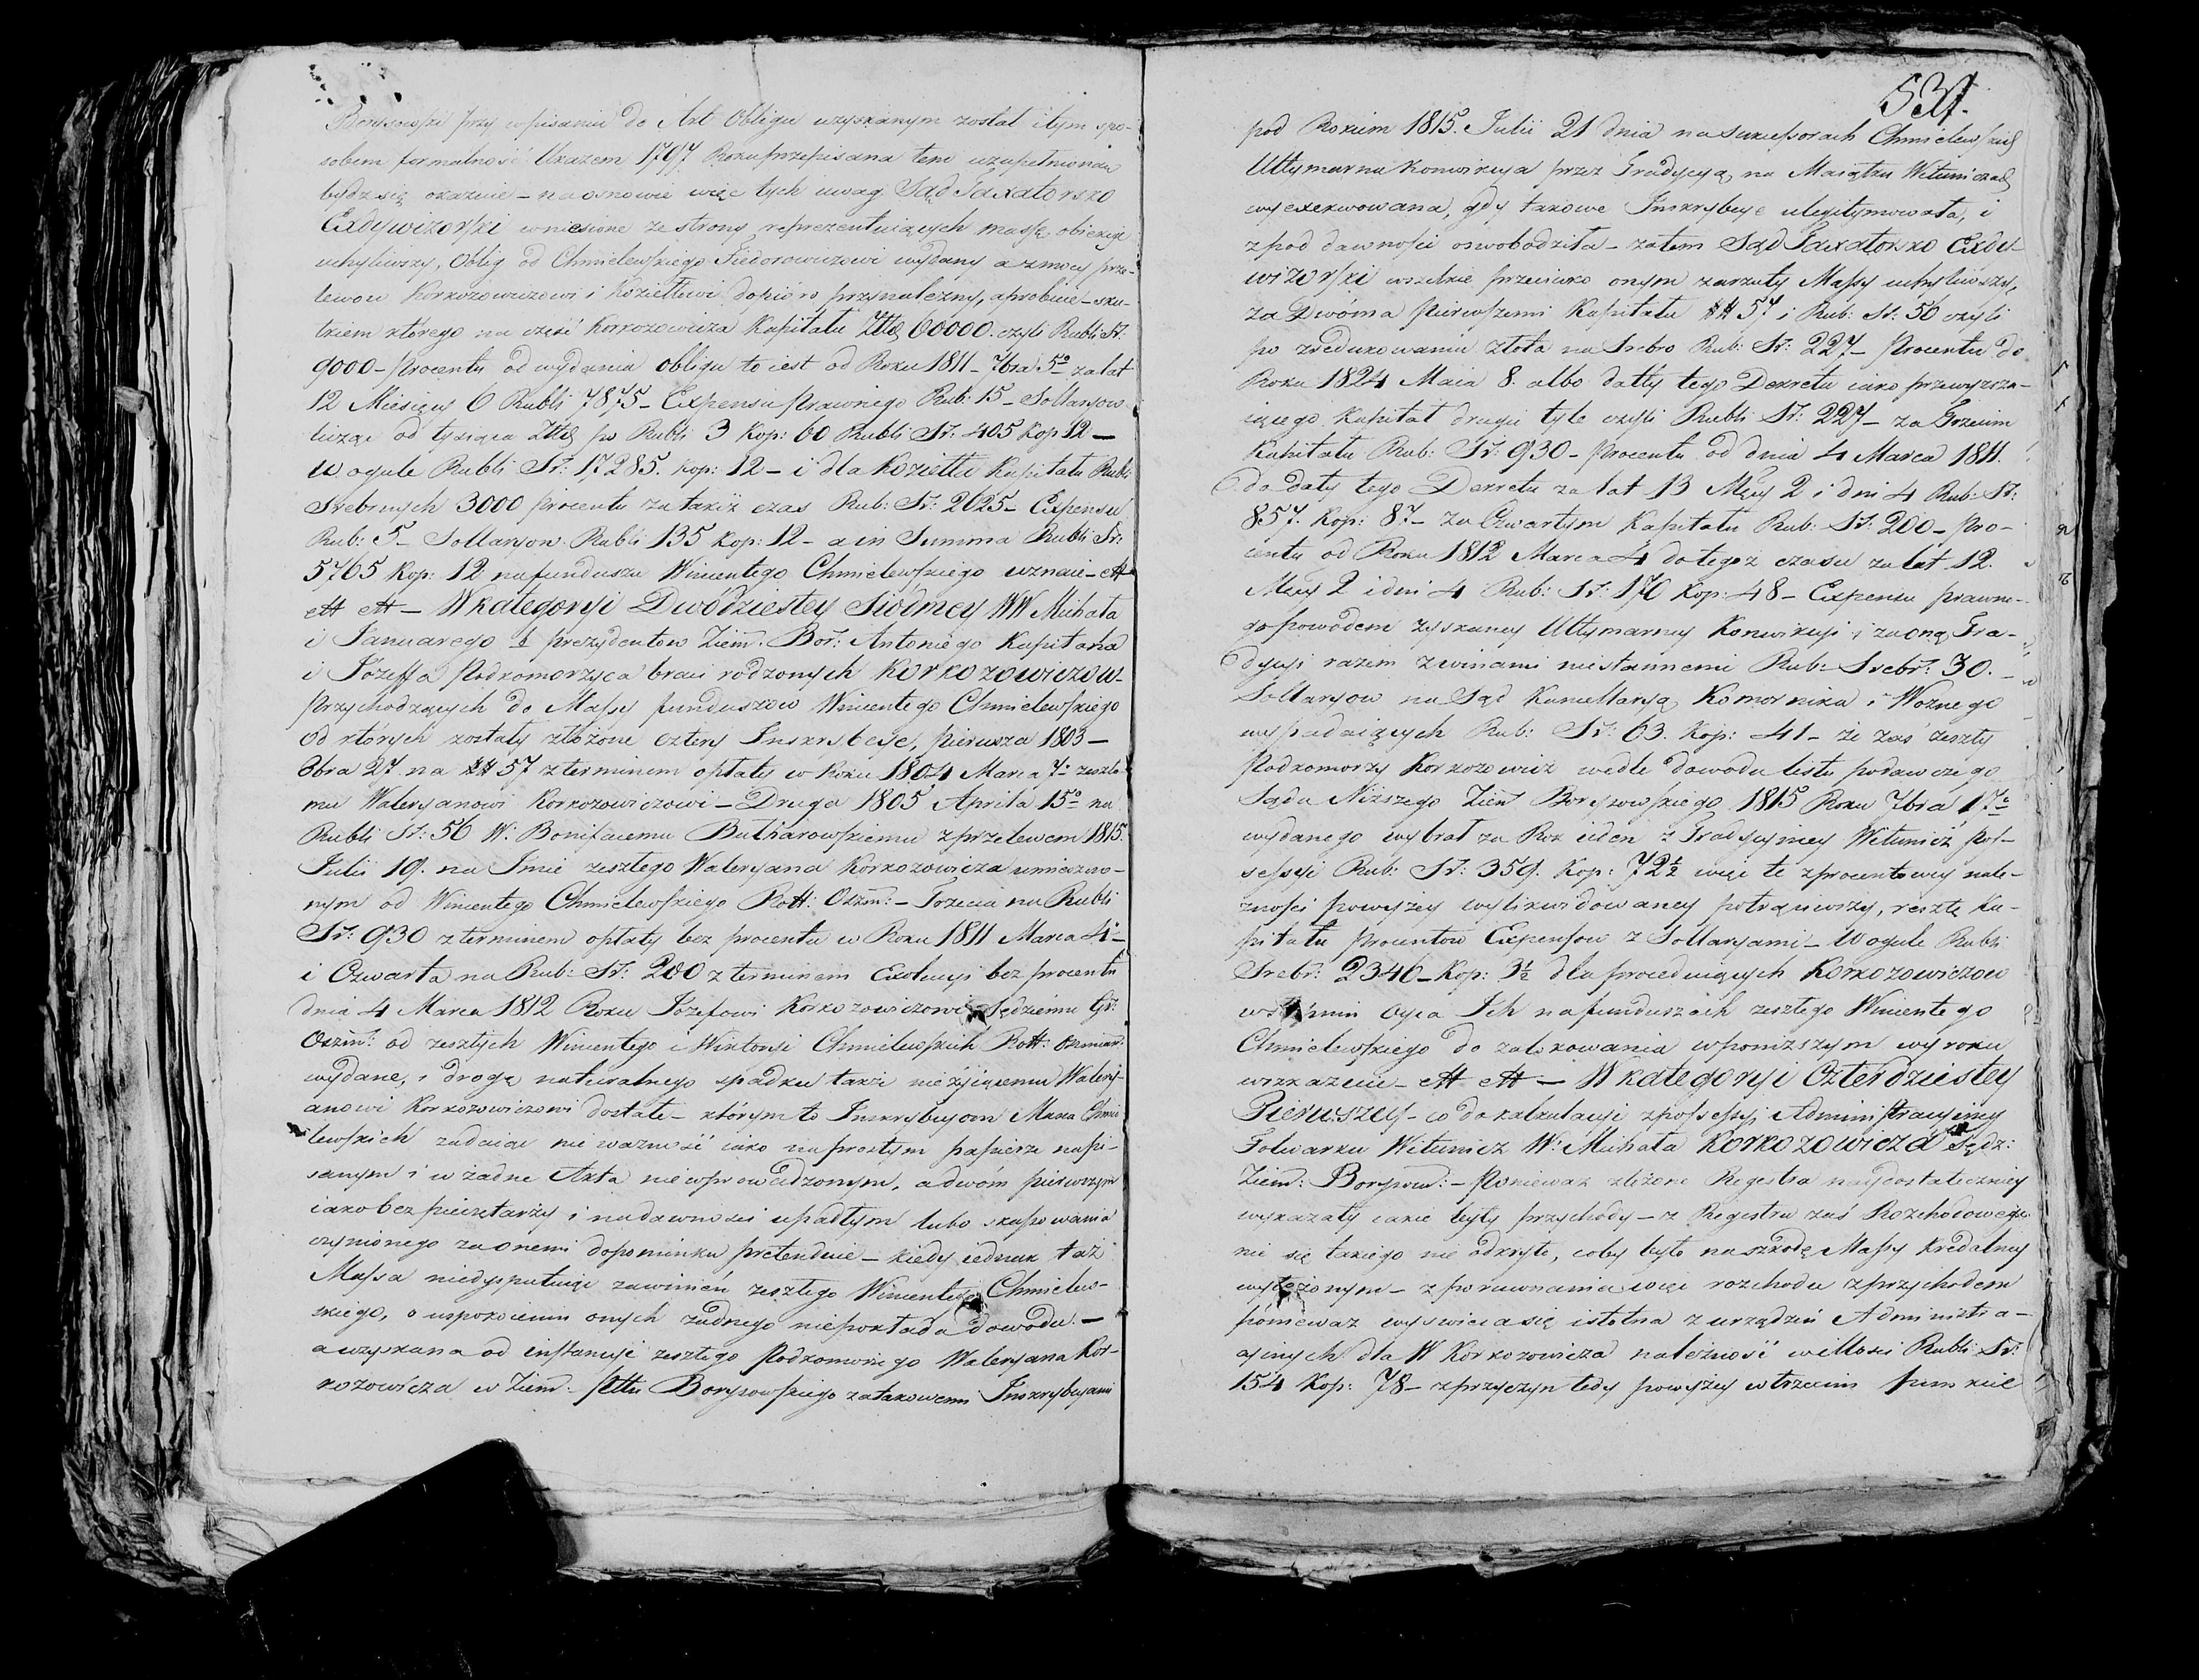 Borysowski przy wpisaniu do Akt Obligu uzyskanym został i tym spo-
sobem formalność Ukazem 1797 Roku przepisana tem uzupełnioną
bydź się okazuie – na osnowie więc tych uwag Sąd Taxatorsko
Exdywizorski wniesione ze strony reprezentuiących massę obiekcye
uchyliwszy, Oblig od Chmielewskiego Fiedorowiczowi wydany a z mocy prze-
lewow Korkozowiczowi i Koziełłowi dopióro przynależny, aprobuie – sku-
tkiem którego na część Korkozowicza Kapitału Złłch 60000. czyli Rubli Sr:
9000 – Procentu od wydania obligu to iest od Roku 1811 – 7bra 5o za lat
12 Miesięcy 6 Rubli 7875 – Expensu Prawnego Rub: 15 – Sollaryow
licząc od tysiąca Złłch po Rubli 3 Kop: 60 Rubli Sr: 405 Kop 12 —
W ogule Rubli Sr: 17285. Kop: 12 – i dla Koziełła Kapitału Rubli
Srebrnych 3000 procentu za takiż czas Rub: Sr: 2025 – Expensu
Rub: 5 – Sollaryow Rubli 135 Kop: 12 – a in Summa Rubli Sr:
5765 Kop: 12 na funduszu Wincentego Chmielewskiego uznaie –
— W kategoryi Dwódziestey Siódmey WW Michała
i Januarego Prezydentow Ziem: Bor: Antoniego Kapitana
i Józeffa Podkomorzyca braci rodzonych Korkozowiczow –
Przychodzących do Massy funduszow Wincentego Chmielewskiego
Od których zostały złożone cztery Inskrybcye, pierwsza 1803 —
8bra 27 na ## 57 z terminem opłaty w Roku 1804 Marca 7o zeszłe-
mu Waleryanowi Korkozowiczowi – Druga 1805 Aprila 15o na
Rubli Sr: 56 W: Bonifacemu Bucharowskiemu z przelewem 1815.
Julii 19. na Imie zeszłego Waleryana Korkozowicza umieszczo-
nym od Wincentego Chmielewskiego Rott: Oszm: – Trzecia na Rubli
Sr: 930 z terminem opłaty bez procentu w Roku 1811 Marca 4o –
i Czwarta na Rub: Sr: 200 z terminem Exolucyi bez procentu
dnia 4 Marca 1812 Roku Józefowi Korkozowiczowi Sędziemu Gr:
Oszm: od zeszłych Wincentego i Wiktoryi Chmielewskich Rott: Oszmiań:
wydane, i drogą naturalnego spadku także nieżyiącemu Walery-
anowi Korkozowiczowi dostałe – którym to Inskrybcyom Massa Chmie
lewskich zadaiąc nieważność iako na prostym papierze napi-
sanym i w żadne Akta niewprowadzonym, a dwóm pierwszym
iako bez pieczętarzy i na dawności upadłym lubo skassowania
czynionego za onemi dopominku pretenduie – kiedy iednak taż
Massa niedysputuiąc zawinień zeszłego Wincentego Chmielew-
skiego, o uspokoieniu onych żadnego niepokłada dowodu. –
a uzyskana od instancyi zeszłego Podkomorzego Waleryana Kor-
kozowicza w Ziem: Pttu Borysowskiego za takowemi Inskrybcyami
531.
pod Rokiem 1815. Julii 21 dnia na sukcessorach Chmielewskich
Ultymarna Konwikcya przez Tradycyą na Maiątku Wituniczach
wyexekwowana, gdy takowe Inskrybcye ulegitymowała, i
z pod dawności oswobodziła – zatem Sąd Taxatorsko Exdy-
wizorski wszelkie przeciwko onym zarzuty Massy uchyliwszy,
za Dwóma Pierwszemi Kapitału ## 57 i Rub: Sr: 56 czyli
po zredukowaniu złota na Srebro Rub: Sr: 227 – Procentu do
Roku 1824 Maia 8. albo datty tego Dekretu iako przewyższa-
iącego kapitał drugie tyle czyli Rubli Sr: 227 – za Trzecim
Kapitału Rub: Sr: 930 – Procentu od dnia 4 Marca 1811.
do daty tego Dekretu za lat 13 Mcy 2 i dni 4 Rub: Sr:
857. Kop: 87 – za Czwartym Kapitału Rub: Sr: 200 – Pro-
centu od Roku 1812 Marca 4 do tegoż czasu za lat 12.
Mcy 2 i dni 4 Rub: Sr: 170 Kop: 48 – Expensu prawne-
go powodem zyskaney Ultymarney Konwikcyi i za oną Tra-
dycyi razem z winami niestannemi Rub: Srebr: 30. –
Sollaryow na Sąd Kancellaryą Komornika i Woźnego
wypadaiących Rub: Sr: 63. Kop: 41 – że zaś zeszły
Podkomorzy Korkozowicz wedle dowodu listu podawczego
Sądu Niższego Ziem: Borysowskiego 1815 Roku 7bra 17o
wydanego wybrał za Rok ieden z Tradycyiney Witunicz pos-
sessyi Rub: Sr: 359. Kop: 72½ więc te z procentowey nale-
żności powyżey wylikwidowaney potrąciwszy, resztę ka-
pitału Procentow Expensow z Sollaryami – W ogule Rubli
Srebr: 2346 – Kop: 3½ dla proceduiących Korkozowiczow
Oyca Ich na funduszach zeszłego Wincentego
Chmielewskiego do zalokowania w poniższym wyroku
wskazuie – — W kategoryi Czterdziestey
Pierwszey – co do kalkulacyi z possessyi Administracyiney
Folwarku Witunicz W: Michała Korkozowicza Sędz:
Ziem: Borysow: – Ponieważ złożone Regestra naydostateczniey
wykazały iakie były przychody – z Regestru zaś Rozchodowego
nic się takiego nie odkryło, coby było na szkodę Massy Kredalney
wyłożonym – z porownania więc rozchodu z przychodem
ponieważ wyswieca się istotna z urządzeń Administra-
cyinych dla W Korkozowicza należność w illości Rubli Sr:
154 Kop: 78 – z przyczyn tedy powyżey w trzecim punkcie